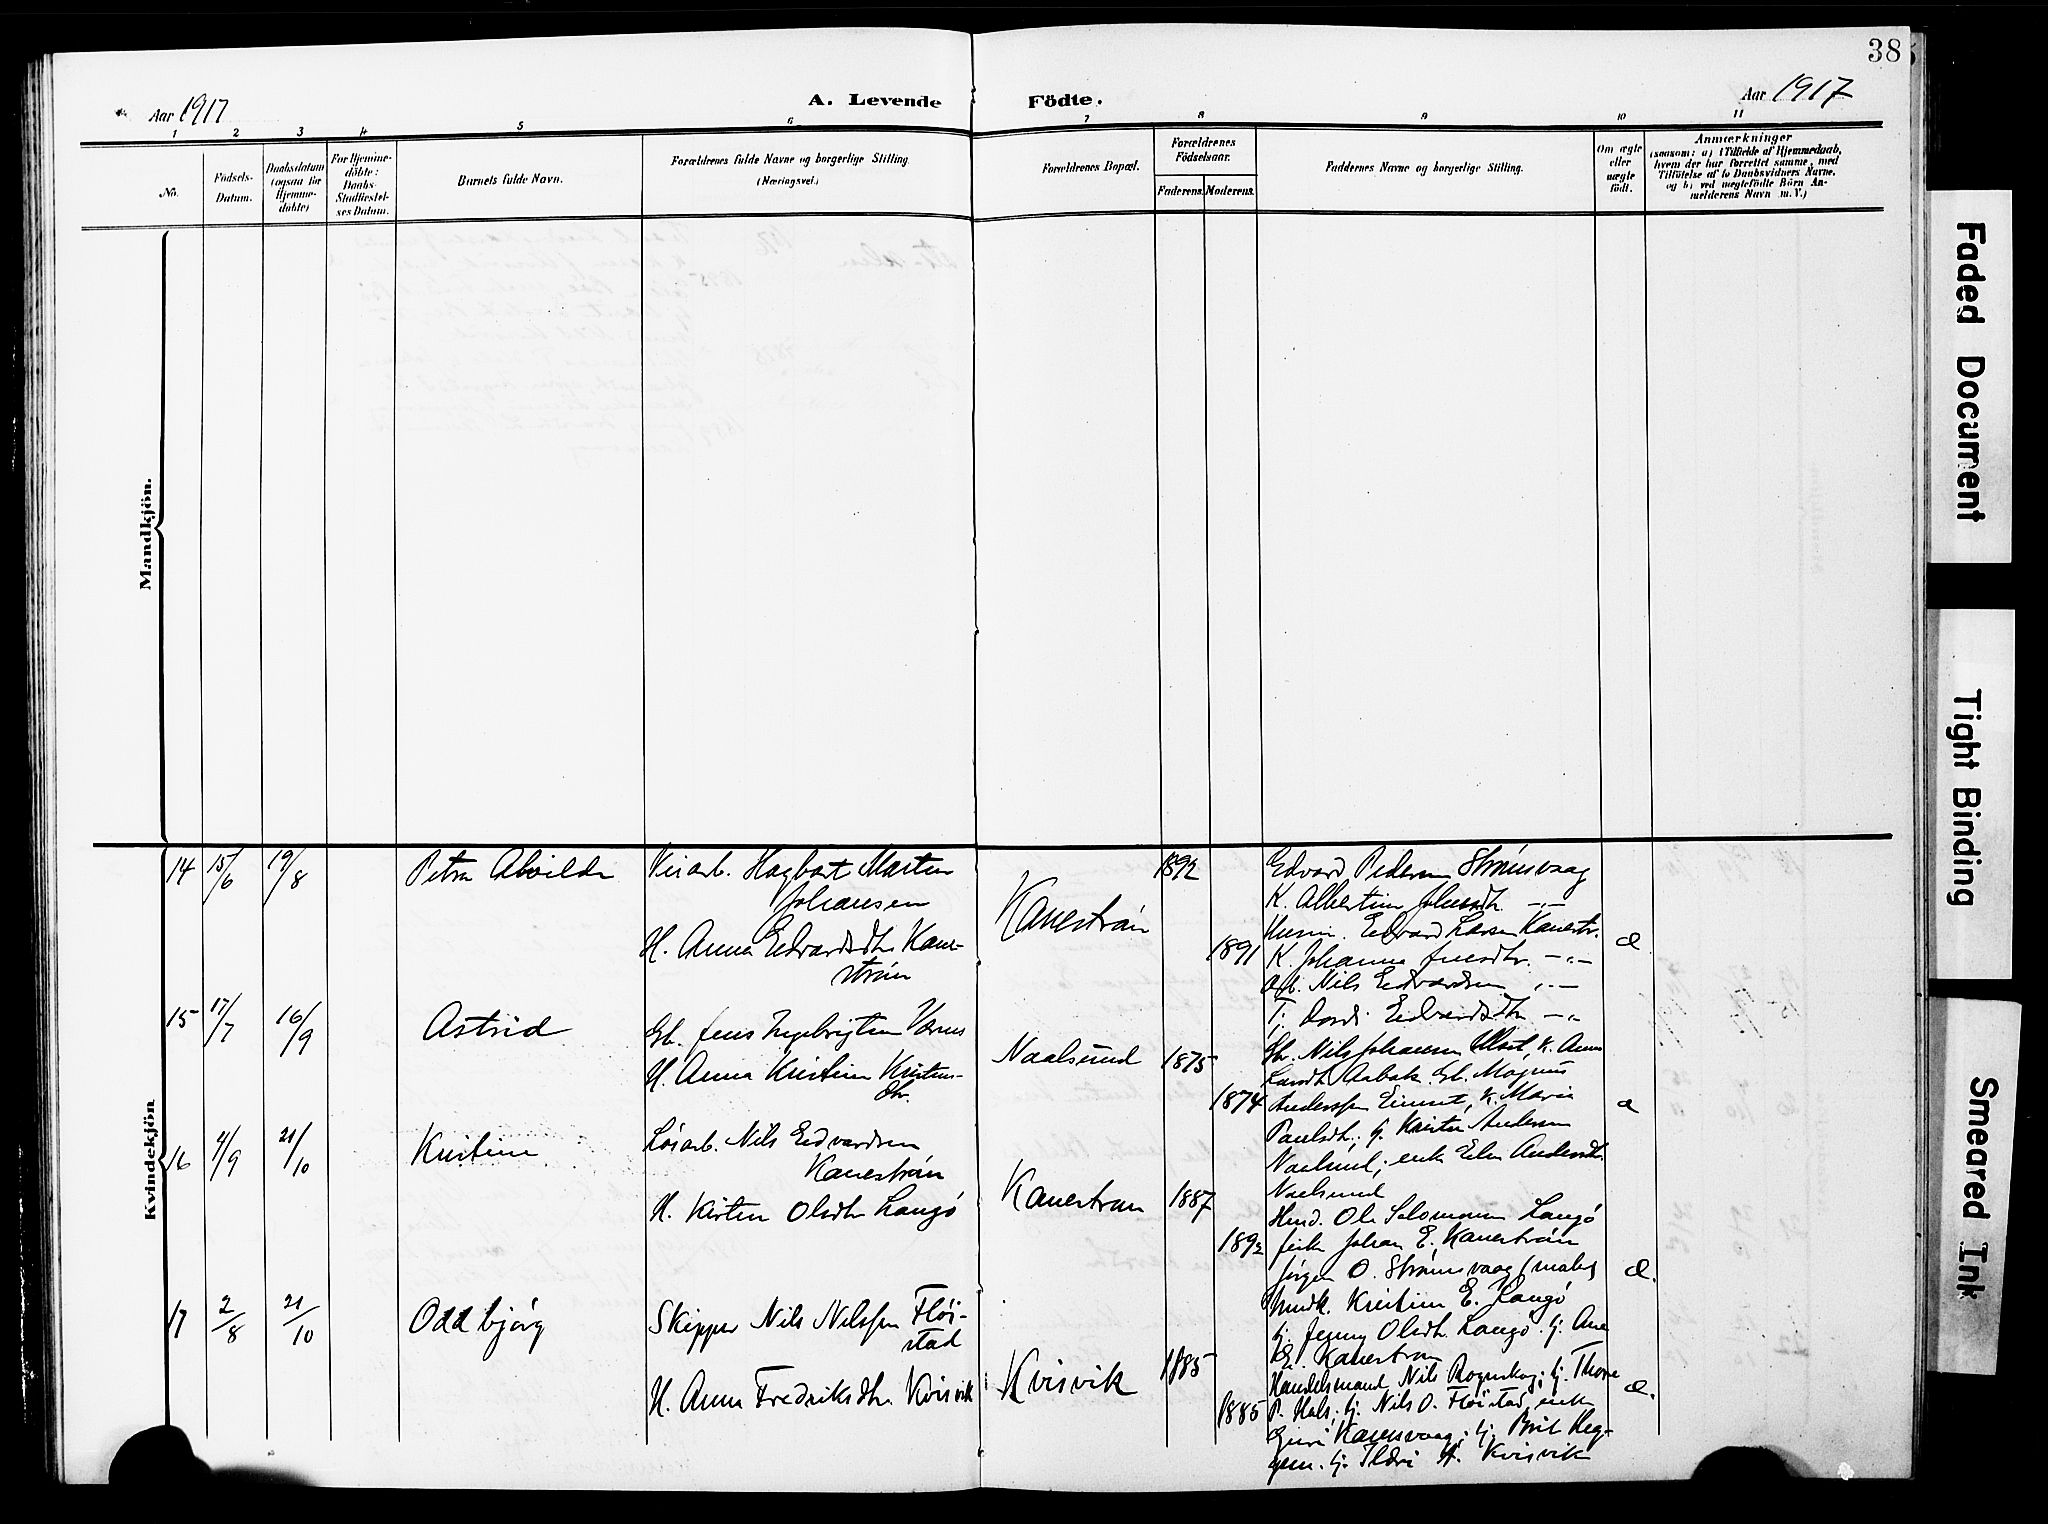 38
Aar 1917
A. Levende Födte.
Aar 1917
1 2 3 4 5 6 7 8 9 10 11
No.
Födsels-
Datum.
Daabsdatum
(ogsaa for
Hjemme-
döbte)
For Hjemme-
döbte:
Daabs-
Stadfæstel-
ses Datum.
Barnets fulde Navn.
Forældrenes fulde Navne og borgerlige Stilling.
(Næringsvei.)
Forældrenes Bopæl.
Forældrenes
Födselsaar.
Faderens. Moderens.
Faddernes Navne og borgerlige Stilling.
Om ægte
eller
uægte
födt.
Anmærkninger
(saasom: a) i Tilfælde af Hjemmedaab,
hvem der har forrettet samme, med
Tilföielse af to Daabsvidners Navne,
og b) ved uægtefödte Börn An-
melderens Navn m. V.)
Mandkjön.
Kvindekjön
14 15/6 19/8 Petra Alvilde
Veiarb. Hagbart Martin
Johansen
H. Anna Edvardsdtr. Kane-
strøm
Kanestrøm
1892
1891
Edvard Pedersen Strømsvaag
K. Albertine Johnsdtr. -"-
Husm. Edvard Larsen Kanestr.
K. Johanna Jensdtr. -"-
Nils Edvardsen -"-
T. Edvardsdtr. -"-
15 17/7 16/9 Astrid
Gb. Jens Ingebrigtsen
H. Anna Kristine Kristens-
dtr.
Naalsund
1875
1874
Nils Johansen K. Anne
Larsdtr. Aabak. Gb. Magnus
Anderssen K. Marie
Paulsdtr., Andersen
Naalsund; enke Andersdtr.
Naalsund
16 4/9 21/10 Kristine
Løsarb. Nils Edvardsen
Kanestrøm
H. Kirsten Olsdtr. Langø
Kanestrøm
1887
Ole Salomonsen Langø
Johan E. Kanestrøm
Jørgen O. Strømsvaag (maler)
Kristine E. Langø
Jenny Olsdtr. Langø. Ane
E. Kanestrøm
17 2/8 21/10 Oddbjørg
Skipper Nils Nilssen Fløi-
stad
H. Anna Fredriksdtr. Kvisvik
Kvisvik
1885
1885
Handelsmand Nils Rognskog; Thore
P. Hals; Nils O. Fløistad, enke
Guri Kanesvaag; Brit Heg-
gem. Ildri H. Kvisvik
Faded Document
Tight Binding
Smeared Ink